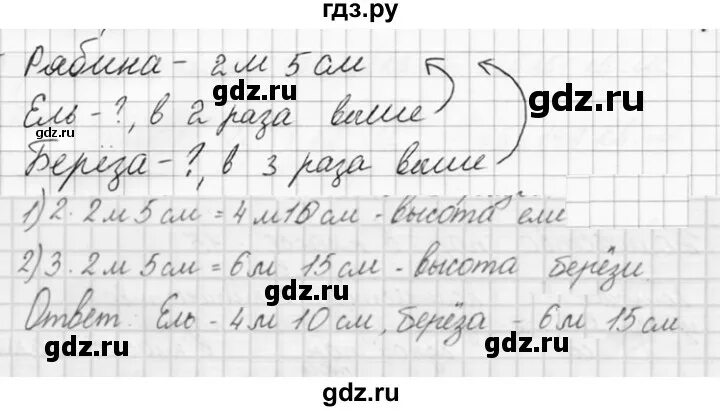 гдз.ру
Рябина - 2 м 5 см
gdz.ru
gdz.ru
Ель - ?, в 2 раза выше
gdz.ru
Берёза - ?, в 3 раза выше
1) 2 · 2 м 5 см = 4 м 10 см - высота ели
2) 3 · 2 м 5 см = 6 м 15 см - высота берёзы
gdz.ru
gdz.ru
Ответ. Ель - 4 м 10 см, берёза - 6 м 15 см
gdz.ru
gdz.ru
gdz.ru